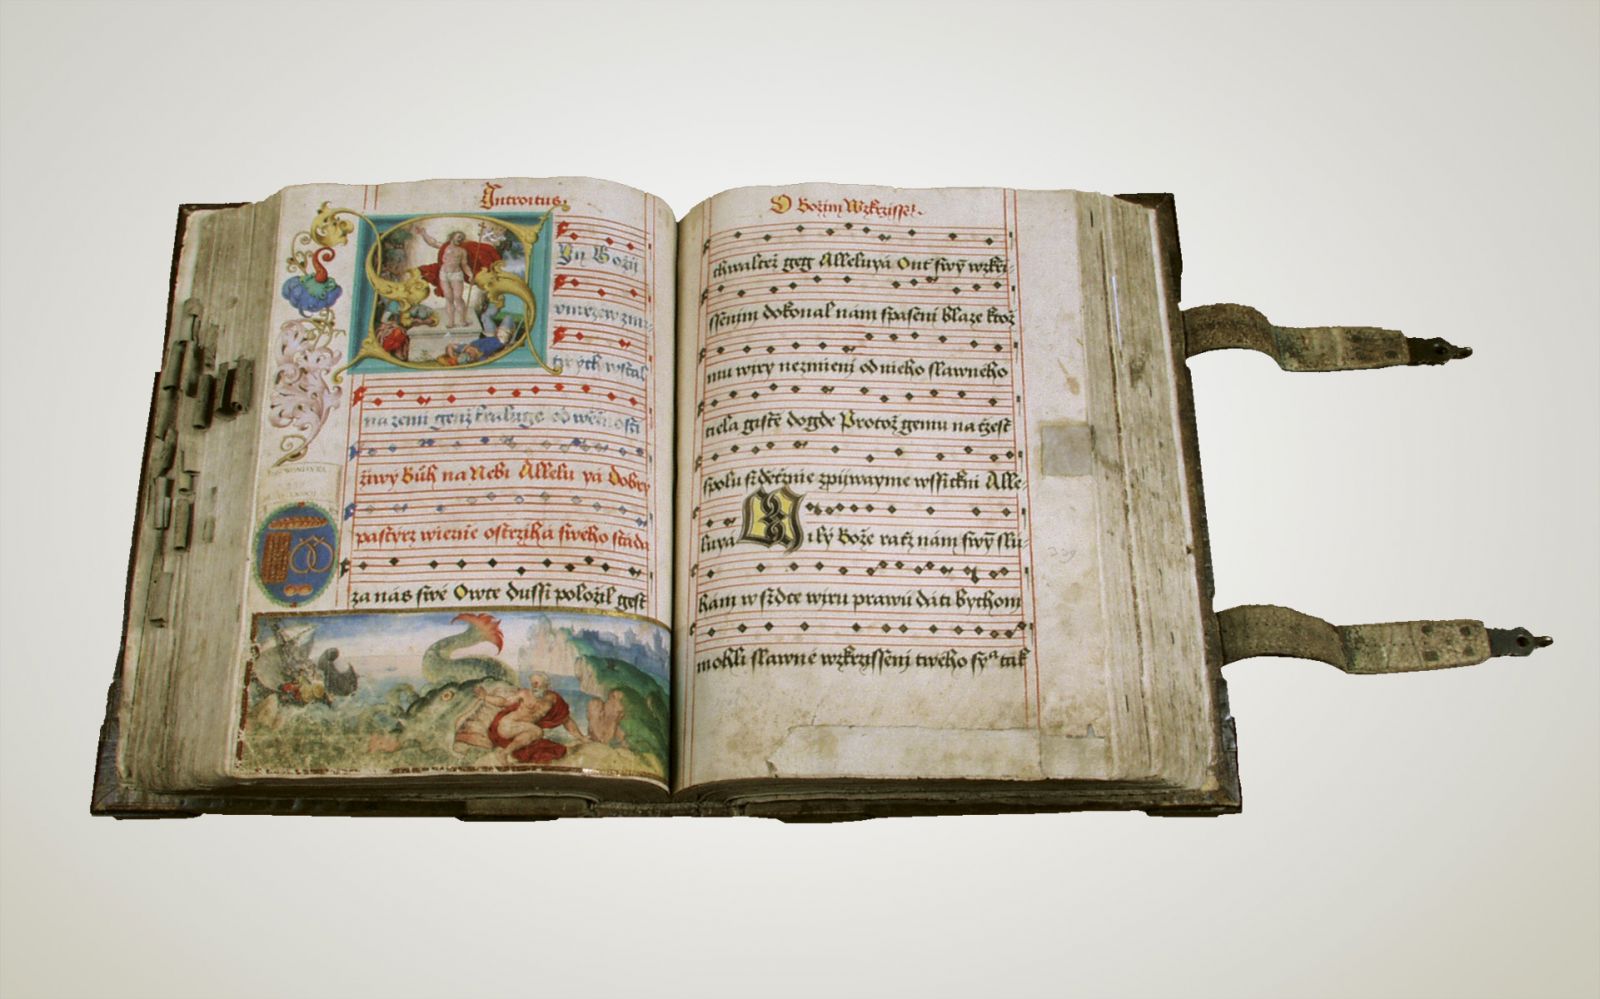 Introitus.
Syn Boží
vmrzew zmr-
twých wstal
na zemi genž kraluge od wěčnosti
žiwý Bůh na Nebi Allelu yá Dobrý
pastýrz wiernie ostrziha swého stáda
za nás swé Owce dussi položil gest
O Božím Wzkrzisse.
chwaltež geg Alleluyá Ont swý wzkrzi-
ssením dokonal nám spasení blaze ktož
mu wiry nezmiení od nieho slawného
tiela gistě dogde Protož gemu na cžest
spolu srdečnie zpijwayme wssickni Alle-
luyá Milý Bože ratž nám swý slu-
kám w srdce wjru prawú dáti bychom
mohli slawné wzkrzissení twého sy^a tak
229